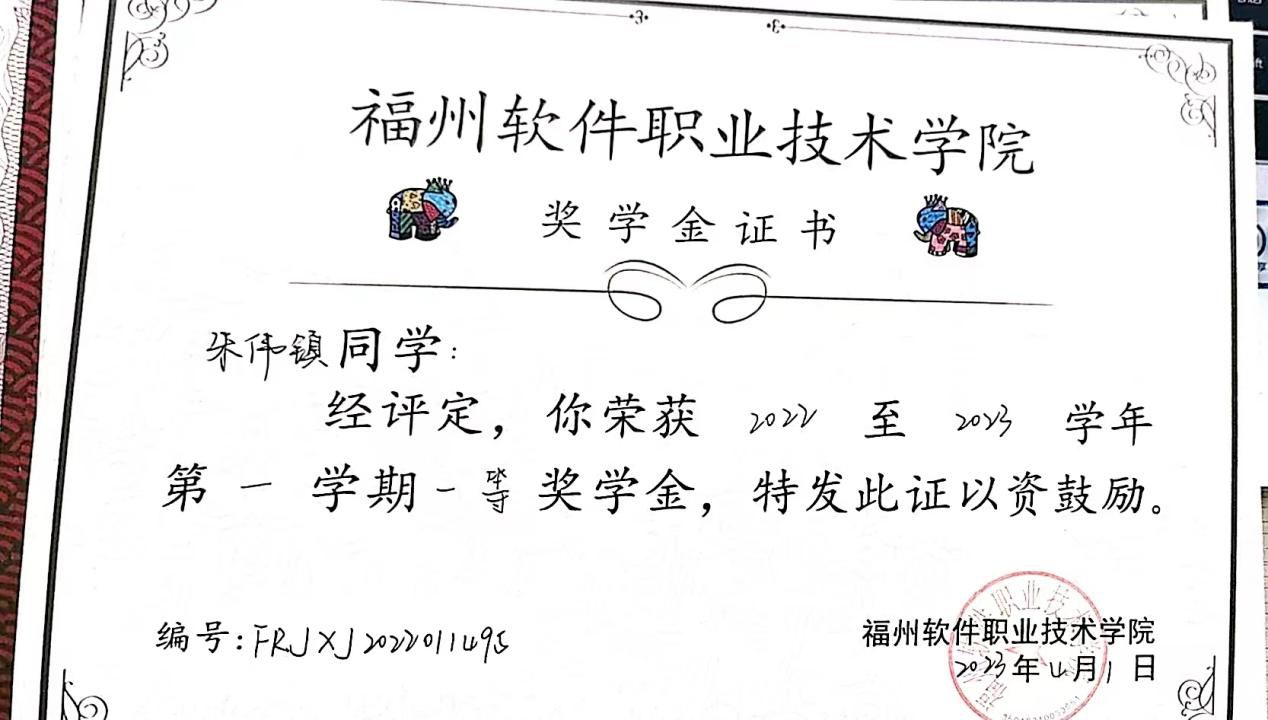 福州软件职业技术学院
奖学金证书
朱伟镇同学:
经评定，你荣获 2022 至 2023 学年
第 一 学期 一等 奖学金，特发此证以资鼓励。
编号:FRJXJ2022011495
福州软件职业技术学院
2023年4月1日